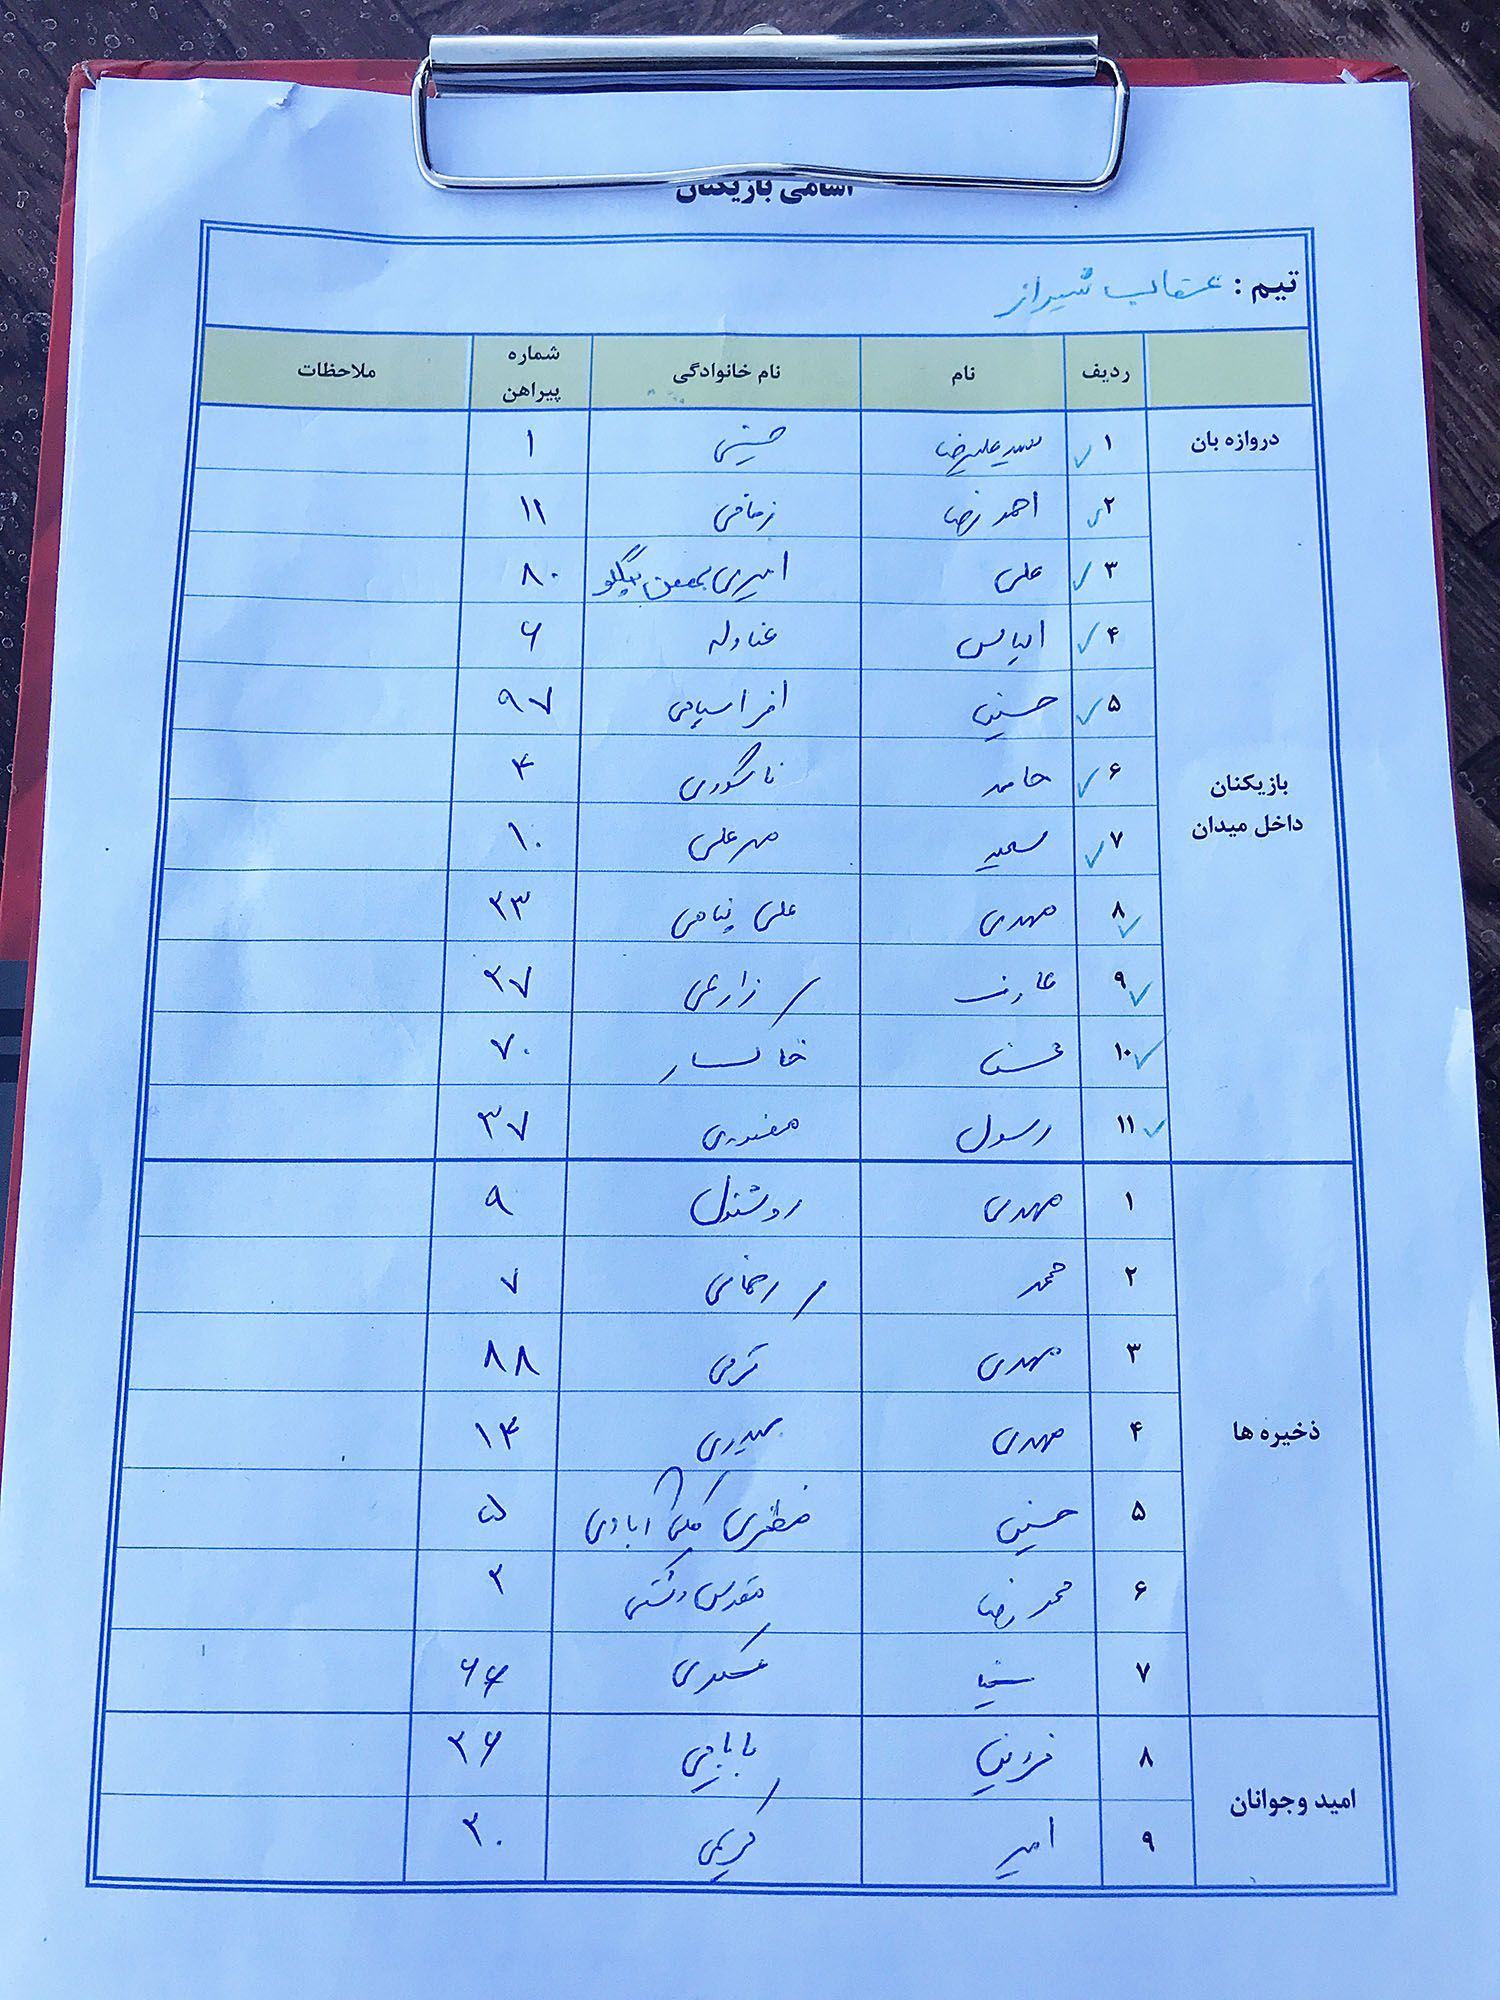 اسامی بازیکنان
تیم : عقاب شیراز
ردیف نام نام خانوادگی شماره پیراهن ملاحظات
دروازه بان
۱ سید علیرضا حسینی ۱
بازیکنان داخل میدان
۲ احمد رضا زمانی ۱۱
۳ علی امیری بهمن بیگلو ۸۰
۴ الیاس ۶
۵ حسین افراسیابی ۹۷
۶ حامد ۴
۷ سعید مهرعلی ۱۰
۸ مهدی علی پناهی ۲۳
۹ عارف زارعی ۲۷
۱۰ محسن خاکسار ۷۰
۱۱ رسول صفدری ۳۷
ذخیره ها
۱ مهدی روشندل ۹
۲ محمد رضائی ۷
۳ مهدی کرمی ۸۸
۴ مهدی حیدری ۱۴
۵ حسین آبادی ۵
۶ محمد رضا مقدس دشتی ۲
۷ سینا عسکری ۶۶
امید وجوانان
۸ فرزین بابایی ۲۶
۹ امیر کریمی ۲۰